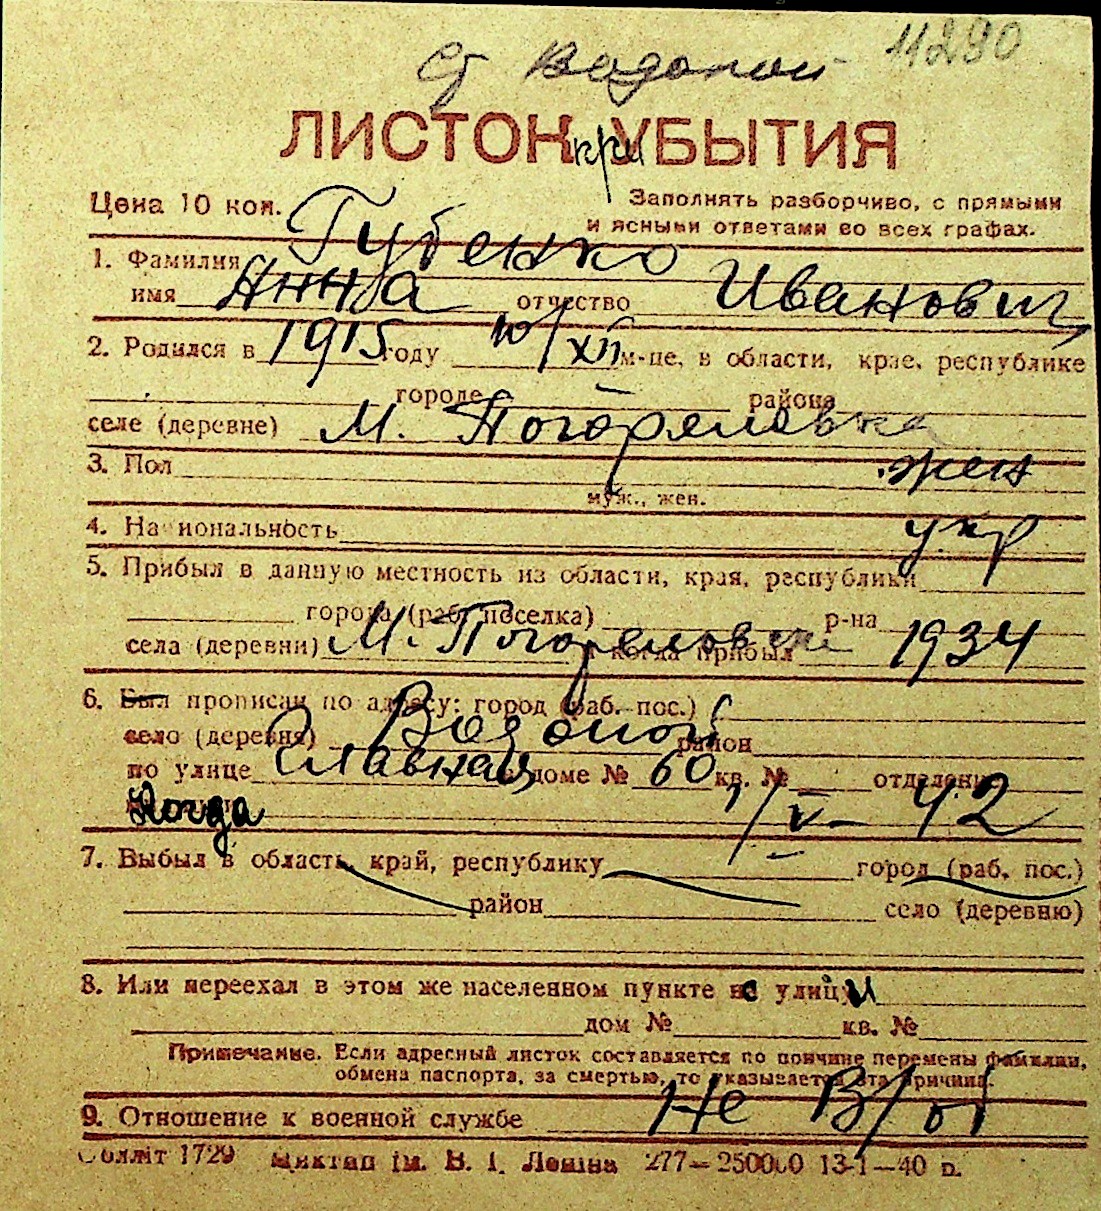 Ст Водопой 11290
ЛИСТОК при УБЫТИЯ
Цена 10 коп. Заполнять разборчиво, с прямыми
и ясными ответами во всех графах.
1. Фамилия Губенко
имя Анна отчество Иванович
2. Родился в 1915 году 10/XII м-це, в области, крае, республике
городе района
селе (деревне) М. Погореловка
3. Пол жен
муж., жен.
4. Национальность укр
5. Прибыл в данную местность из области, края, республики
города (раб. поселка) р-на
села (деревни) М. Погореловки и когда прибыл 1934
6. Был прописан по адресу: город (раб. пос.)
село (деревня) Водопой район
по улице Главная в доме № 60 кв. № отделение
Когда 1/V - 42
7. Выбыл в область, край, республику город (раб. пос.)
район село (деревню)
8. Или переехал в этом же населенном пункте с улицы
дом № кв. №
Примечание. Если адресный листок составляется по причине перемены фамилии,
обмена паспорта, за смертью, то указывается эта причина.
9. Отношение к военной службе Не В/об
Обллiт 1729 Миктап iм. В. I. Ленiна 277—250000 13-1—40 р.